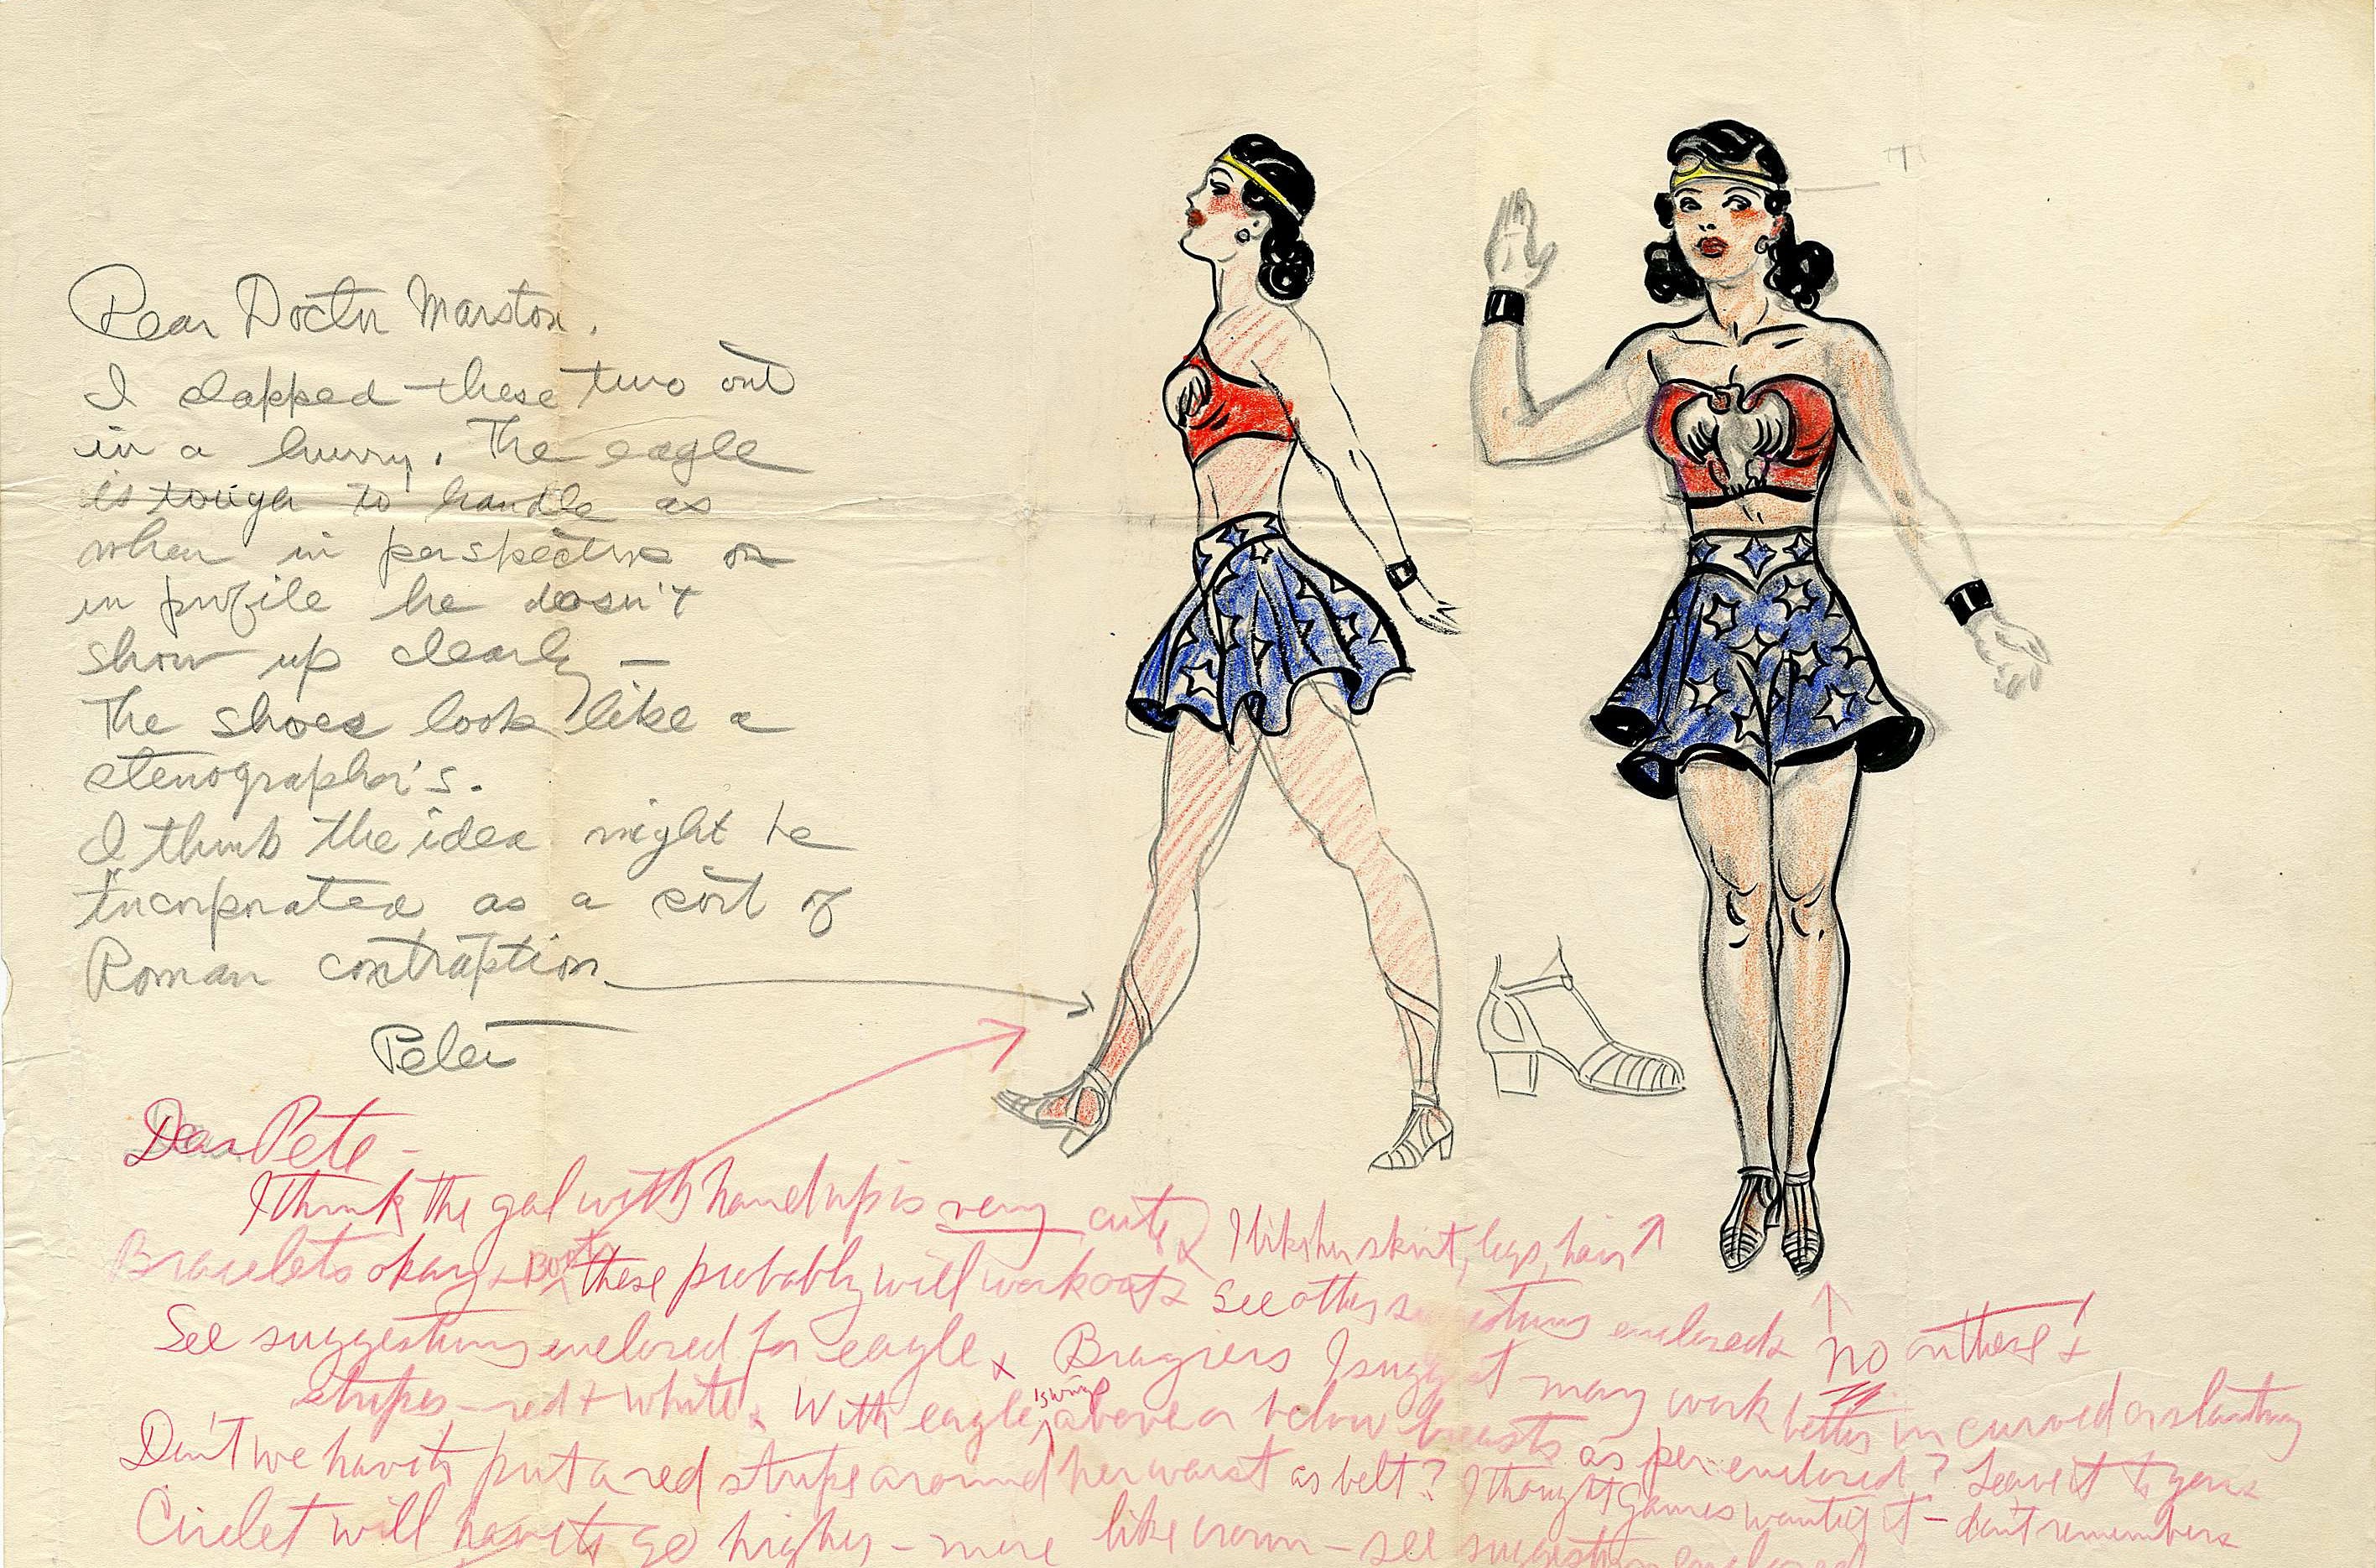 Dear Doctor Marston.
I slapped these two out
in a hurry. The eagle
is tough to handle as
when in perspective or
in profile he doesn't
show up clearly —
The shoes look like a
stenographer's.
I think the idea might be
incorporated as a sort of
Roman contraption
Peter
Dear Pete –
I think the gal with hand up is very cute. I like her skirt, legs, hair
Bracelets okay + Boots these probably will work out. See other suggestions enclosed. No on these! +
See suggestions enclosed for eagle. Braziers I suggest may work better in curved or slanting
stripes – red + white. With eagle's wings above or below breasts as per enclosed? Leave it to you.
Don't we have to put a red stripe around her waist as belt? I thought Gaines wanted it – don't remember.
Circlet will have to go higher – more like crown – see suggestions enclosed